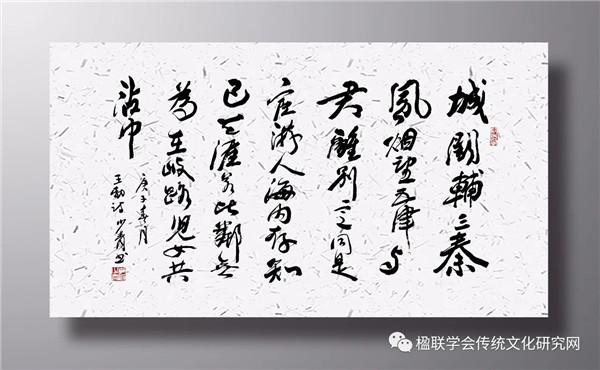 城闕輔三秦
風烟望五津与
君離别意同是
宦游人海内存知
己天涯若比鄰無
為在歧路児女共
沾巾
庚子春月
王勃诗少书
楹联学会传统文化研究网